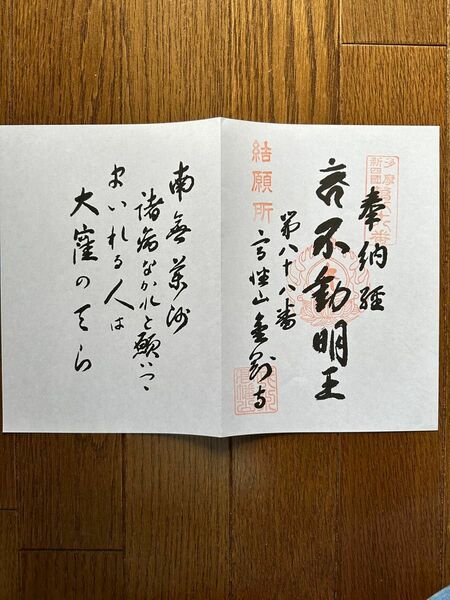 多摩
新四國
奉納経
不動明王
第八十八番
結願所
高幡山金剛寺
南無薬師
諸病なかれと願いつゝ
まいれる人は
大窪のてら